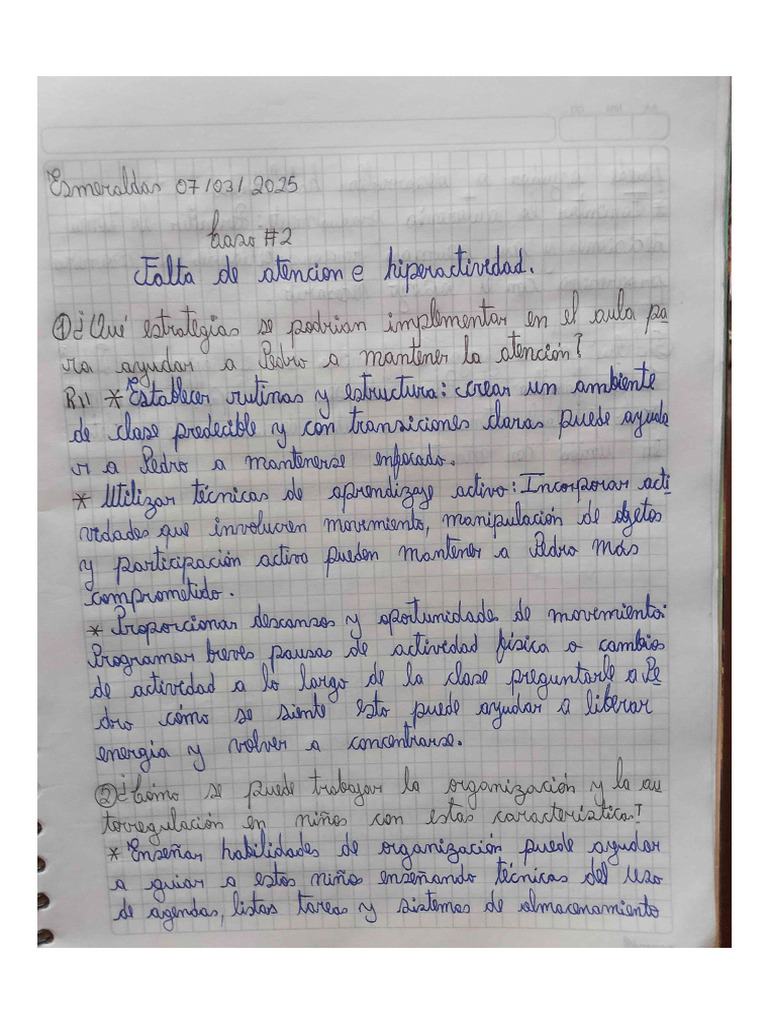 Esmeraldas 07/03/2025
Caso #2
Falta de atencion e hiperactividad.
① ¿Qué estrategias se podrian implementar en el aula pa
ra ayudar a Pedro a mantener la atención?
R// * Establecer rutinas y estructura: crear un ambiente
de clase predecible y con transiciones claras puede ayuda
r a Pedro a mantenerse enfocado.
* Utilizar técnicas de aprendizaje activo: Incorporar acti
vidades que involucren movimiento, manipulación de objetos
y participación activo pueden mantener a Pedro más
comprometido.
* Proporcionar descansos y oportunidades de movimiento:
Programar breves pausas de actividad física o cambios
de actividad a lo largo de la clase preguntarle a Pe
dro cómo se siente esto puede ayudar a liberar
energia y volver a concentrarse.
② ¿Cómo se puede trabajar la organización y la au
torregulación en niños con estas característica?
* Enseñar habilidades de organización puede ayudar
a guiar a estos niños enseñando técnicas del uso
de agendas, listas tareas y sistemas de almacenamiento